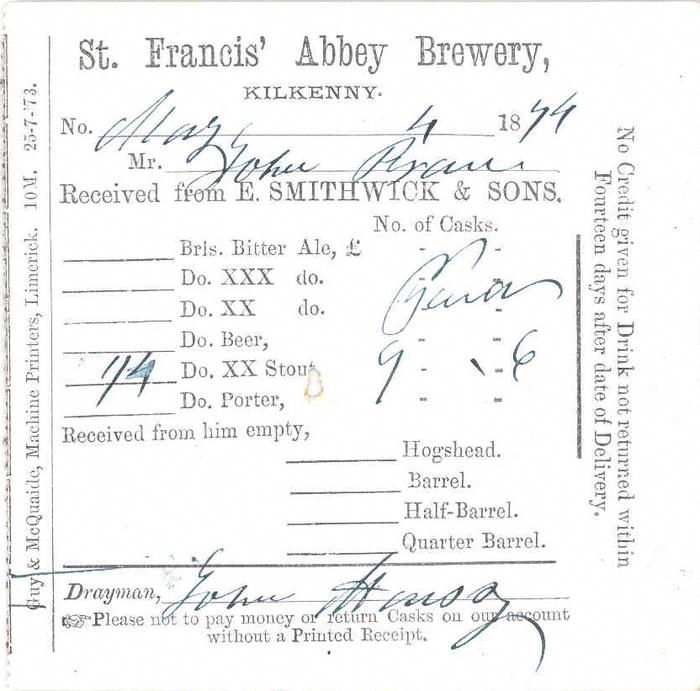 St. Francis' Abbey Brewery,
KILKENNY.
No. May 4 1874
Mr. John
Received from E. SMITHWICK & SONS.
No. of Casks.
Brls. Bitter Ale, £ - -
Do. XXX do. - -
Do. XX do. - -
Do. Beer, - -
1/4 Do. XX Stout 9 - 6
Do. Porter, - -
Received from him empty,
Hogshead.
Barrel.
Half-Barrel.
Quarter Barrel.
Drayman, John
☞Please not to pay money or return Casks on our account
without a Printed Receipt.
Guy & McQuaide, Machine Printers, Limerick. 10M. 25-7-'73.
No Credit given for Drink not returned within
Fourteen days after date of Delivery.